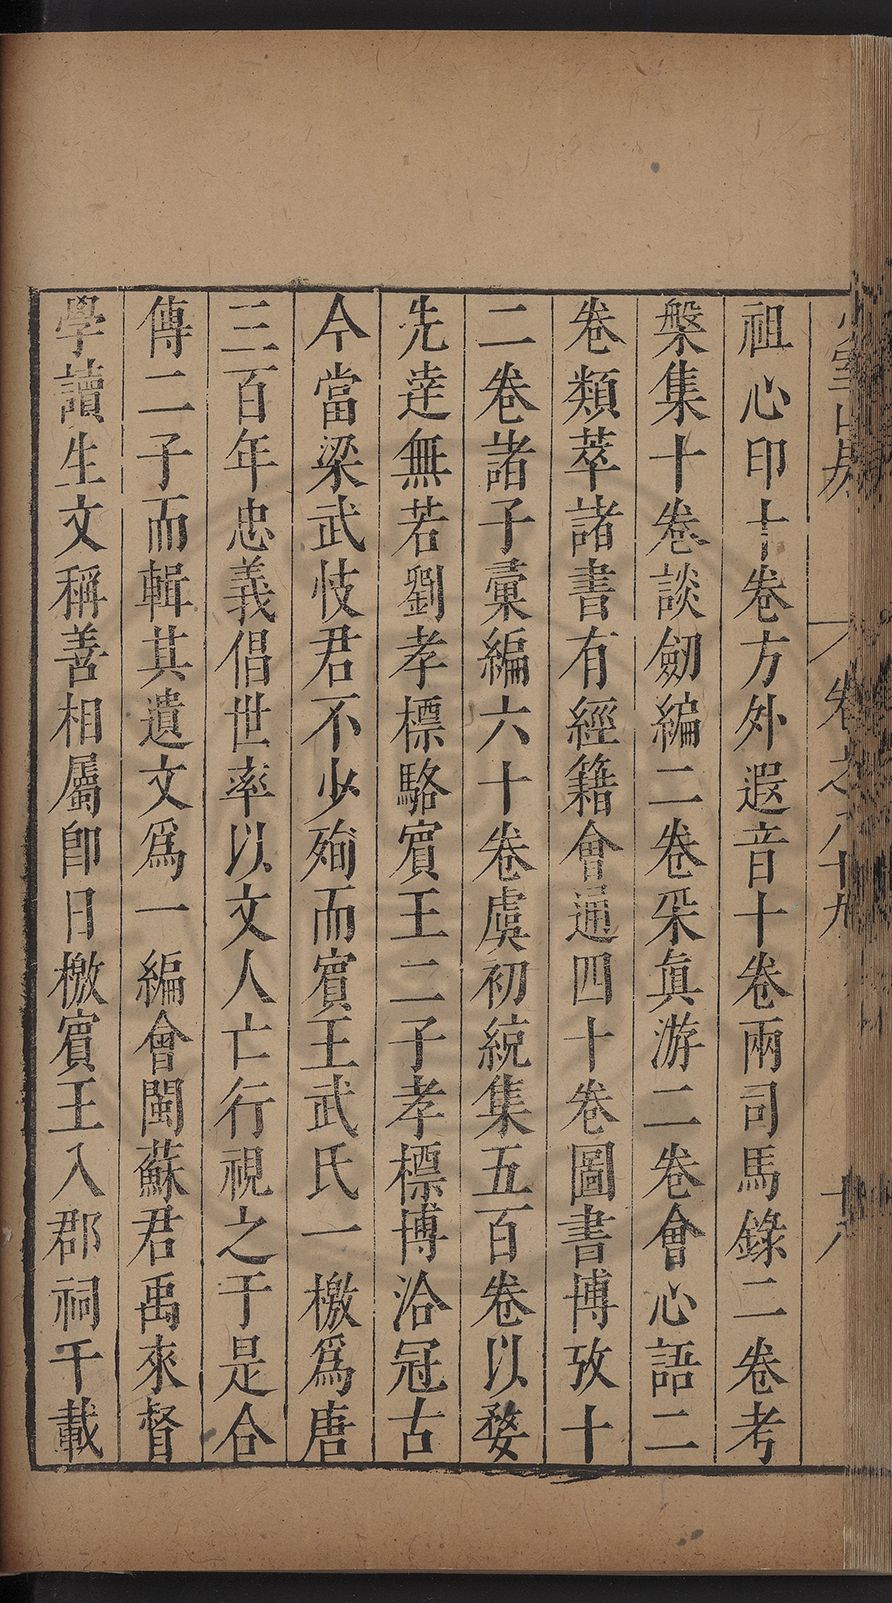 少室山房 卷之八十九 十八
祖心印十卷方外遐音十卷兩司馬錄二卷考
槃集十卷談劒編二卷采眞游二卷會心語二
卷類萃諸書有經籍會通四十卷圖書博攷十
二卷諸子彙編六十卷虞初統集五百卷以婺
先逹無若劉孝標駱賓王二子孝標博洽冠古
今當梁武忮君不少殉而賓王武氏一檄爲唐
三百年忠義倡世率以文人亡行視之于是合
傳二子而輯其遺文爲一編會閩蘇君禹來督
學讀生文稱善相屬卽日檄賓王入郡祠千載